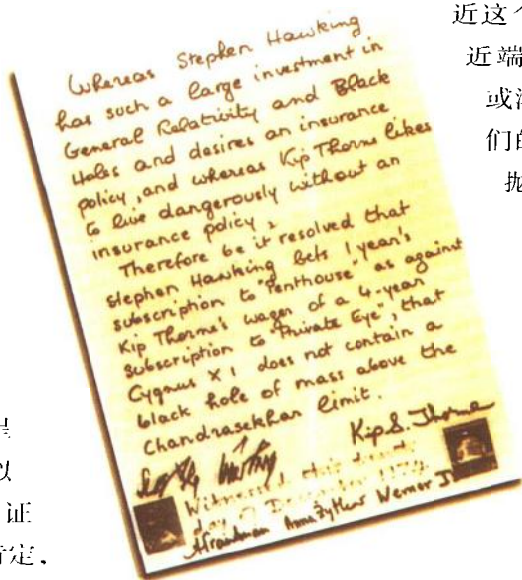 近这个
近端
或
们的
抛
Whereas Stephen Hawking
has such a large investment in
General Relativity and Black
Holes and desires an insurance
policy, and whereas Kip Thorne likes
to live dangerously without an
insurance policy,
Therefore be it resolved that
Stephen Hawking bets 1 year's
subscription to "Penthouse" as against
Kip Thorne's wager of a 4-year
subscription to "Private Eye", that
Cygnus X 1 does not contain a
black hole of mass above the
Chandrasekhar limit.
Kip S. Thorne
Witnessed this
day of December 1974
Anna Żytkow Werner
以
证
定，